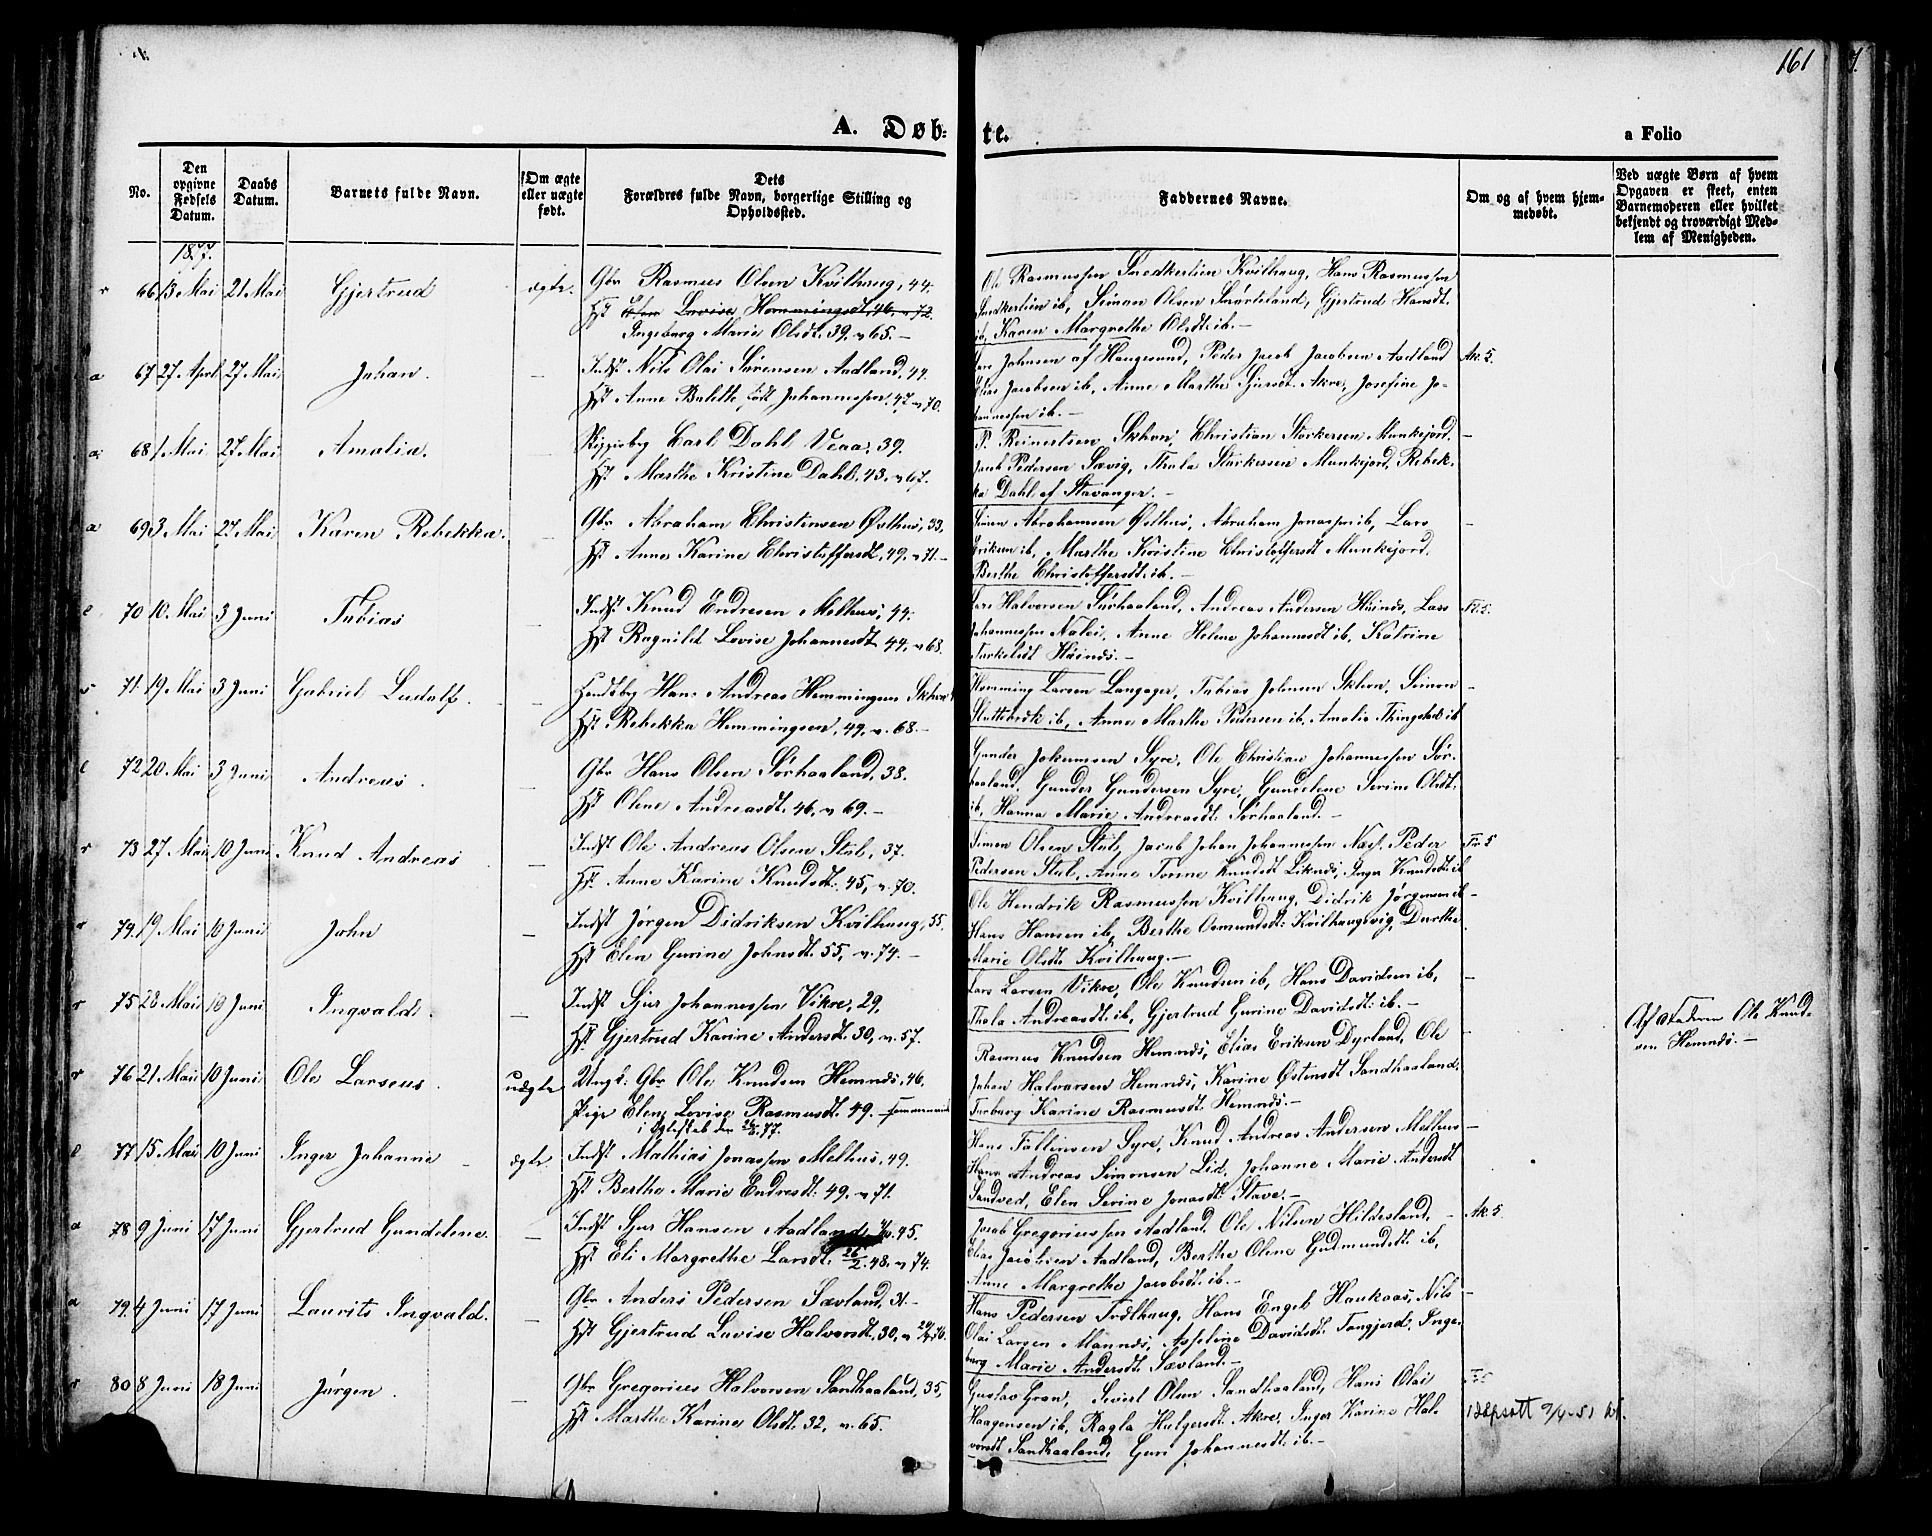 161
A. Døb-
te.
a Folio
No.
Den opgivne Fødsels Datum.
Daabs Datum.
Barnets fulde Navn.
Om ægte eller uægte født.
Dets
Forældres fulde Navn, borgerlige Stilling og
Opholdssted.
Faddernes Navne.
Om og af hvem hjem-
medøbt.
Ved uægte Børn af hvem
Opgaven er skeet, enten
Barnemoderen eller hvilket
bekjendt og troværdigt Med-
lem af Menigheden.
1877.
66 13 Mai 21 Mai Gjertrud ægte. Gbr Rasmus Olsen Kvilhaug, 44.
Hst Lovise Hemmingsdt. 46, v 72.
Ingeborg Marie Olsdt. 39. v 65.
Ole Rasmussen Snedkertien Kvilhaug, Hans Rasmussen
Snedkertien ib, Seman Olsen Snørteland, Gjertrud Hansdt.
ib, Karen Margrethe Olsdt. ib.
67 27 April 27 Mai Johan. — Indst Nils Olai Sørensen Aadland, 44.
Hst Anne Bulette født Johannessen, 47 v 70.
Johnsen af Haugesund, Peder Jacob Jacobsen Aadland Ak. 5.
Elias Jacobsen ib, Anne Marthe Sjursdt. Akre, Josefine Jo-
hannessen ib.
68 1 Mai 27 Mai Amalia. Carl Dahl Veaa, 39.
Hst Marthe Kristine Dahl, 43, v 67.
P. Reinertsen Skhvn, Christian Storkersen Munkejord.
Jacob Pedersen Sævig, Thala Storkersen Munkejord, Rebek-
ka Dahl af Stavanger.
69 3 Mai 27 Mai Karen Rebekka. — Gbr Abraham Christensen Østhus, 33,
Hst Anne Karine Christoffersdt. 49, v 71.
Simon Abrahamsen Østhus, Abraham Jonassen ib, Lars
Eriksen ib, Marthe Kristine Christoffersdt Munkejord.
Berthe Christoffersdt. ib.
70 10. Mai 3 Juni Tobias — Indst Knud Endresen Melhus, 44.
Hst Ragnild Lovise Johannesdt. 44, v 68.
Tore Halvorsen Sørhaaland, Andreas Andersen Hinderaas, Lars
Johannessen Nalei, Anne Helene Johannesdt ib, Katrine
71. 19 Mai 3 Juni Gabriel Ludolf. — Hans Andreas Hemmingsen Skhvn
Hst Rebekka Hemmingsen, 49, v. 68.
Hemming Larsen Langager, Tobias Johnsen Skhvn, Simon
Sluttebrek ib, Anne Marthe Pedersen ib, Amalie Thingstad ib
72 20 Mai 3 Juni Andreas. — Gbr Hans Olsen Sørhaaland, 38.
Hst Olene Andreasdt. 46, v 69.
Gunder Jokumsen Syre, Ole Christian Johannessen Sør-
haaland, Gunder Gundersen Syre, Gundelene Serine Olsdt.
ib, Hanna Marie Andreasdt. Sørhaaland.
73 27 Mai 10 Juni Knud Andreas — Indst Ole Andreas Olsen Stol, 37.
Hst Anne Karine Knudsdt. 45, v. 70.
Simon Olsen Stol, Jacob Johan Johannessen Næss, Peder
Pedersen Stol, Anne Tonne Knudsdt Liknæs, Inger Knudsdt. ib
74. 19 Mai 10 Juni John — Indst Jørgen Didriksen Kvilhaug, 55.
Hst Elen Gurine Johnsdt. 55, v. 74.
Ole Hendrik Rasmussen Kvilhaug, Didrik Jørgensen ib
Hans Hansen ib, Berthe Osmundsdt. Kvilhaugsvig, Dorthe
Marie Olsdt. Kvilhaug.
75 28 Mai 10 Juni Ingvald. — Indst Sjur Johannessen Vikre, 29,
Hst Gjertrud Karine Andersdt. 30, v. 57.
Lars Larsen Vikre, Ole Knudsen ib, Hans Davidsen ib,
Thala Andreasdt. ib, Gjertrud Gurine Davidsdt. ib.
76 21. Mai 10 Juni Ole Larseus. uægte Ungk. Gbr Ole Knudsen Hemnæs, 46.
Pige Elen Lovise Rasmusdt. 49.
i Ægteskab den 26/6 77.
Rasmus Knudsen Hemnæs, Elias Eriksen Dyrland, Ole
Johan Halvorsen Hemnæs, Karine Østensdt Sandhaaland.
Torborg Karine Rasmusdt. Hemnæs.
Af Faderen Ole Knud-
sen Hemnæs.
77 15 Mai 10 Juni Inger Johanne ægte Indst Mathias Jonassen Melhus, 49.
Hst Berthe Marie Endresdt. 49. v 71.
Hans Tollinsen Syre, Knud Andreas Andersen Melhus
Hans Andreas Simonsen Lid, Johanne Marie Andersdt
Sandved, Elen Serine Jonasdt. Stave.
78 9 Juni 17 Juni Gjertrud Gundeline. — Indst Sjur Hansen Aadland 45.
Hst Eli Margrethe Larsdt. 26/2 48. v 74.
Jacob Gregoriussen Aadland, Ole Nilsen Hildesland, Ak. 5.
Elias Jacobsen Aadland, Berthe Olene Gudmundsdt. ib,
Anne Margrethe Jacobsdt. ib.
79. 4 Juni 17 Juni Laurits Ingvald. — Gbr Anders Pedersen Sævland, 31.
Hst Gjertrud Lovise Halvorsdt. 30, v 76.
Hans Pedersen Tvedthaug, Hans Engel Haukaas, Nils
Olai Larsen Mannæs, Asseline Davidsdt. Tangjerd, Inge-
borg Marie Andersdt. Sævland.
80 8 Juni 18 Juni Jørgen. — Gbr Gregorius Halvorsen Sandhaaland, 35,
Hst Marthe Karine Olsdt. 32, v. 65.
Gustav Gron, Sivert Olsen Sandhaaland, Hans Olai
Haagensen ib, Ragla Holgersdt. Akre, Inger Karine Hal-
vorsdt Sandhaaland, Guri Johannesdt. ib.
Dåpsatt 9/4-51